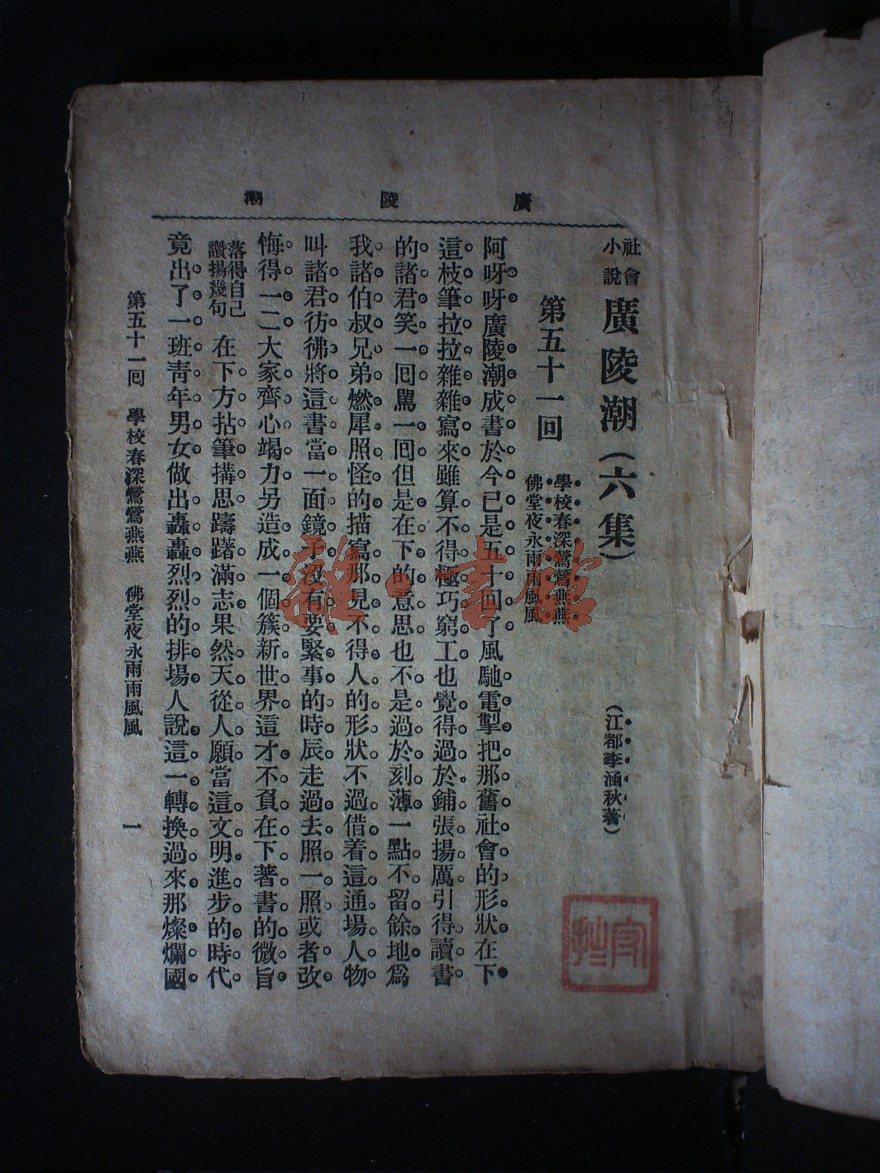 廣陵潮
社會小說 廣陵潮（六集） （江都李涵秋著）
第五十一回 學校春深鶯鶯燕燕
佛堂夜永雨雨風風
阿呀呀廣陵潮成書於今已是五十回了風馳電掣把那舊社會的形狀在下
這枝筆拉拉雜雜寫來雖算不得極巧窮工也覺得過於鋪張揚厲引得讀書
的諸君笑一回罵一回但是在下的意思也不是過於刻薄一點不留餘地爲
我諸伯叔兄弟燃犀照怪的描寫那見不得人的形狀不過借着這通場人物
叫諸君彷彿將這書當一面鏡子沒有要緊事的時辰走過去照一照或者改
悔得一二大家齊心竭力另造成一個簇新世界這才不負在下著書的微旨
落得自己讚揚幾句 在下方拈筆搆思躊躇滿志果然天從人願當這文明進步的時代
竟出了一班靑年男女做出轟轟烈烈的排場人說這一轉換過來那燦爛國
第五十一回 學校春深鶯鶯燕燕 佛堂夜永雨雨風風 一
雜·書館